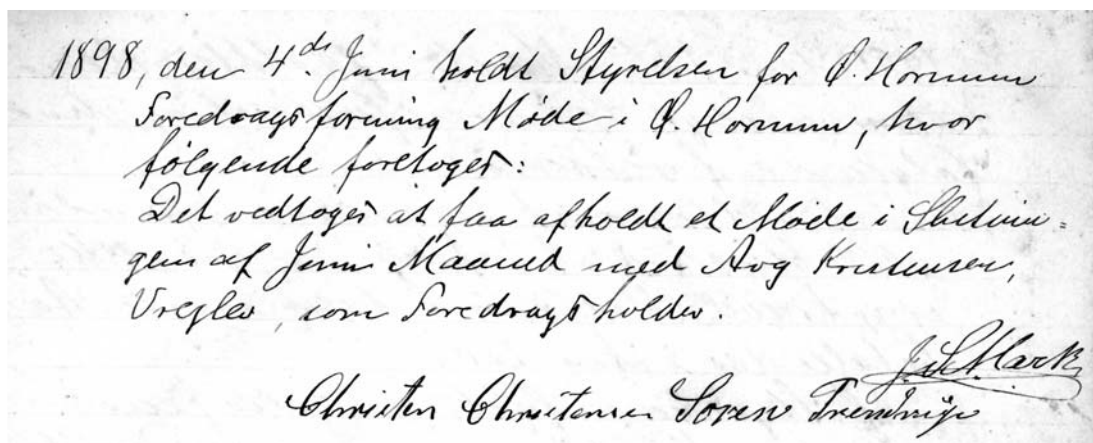 1898, den 4de Juni holdt Styrelsen for Ø. Hornum
Foredragsforening Møde i Ø. Hornum, hvor
følgende foretoges:
Det vedtoges at faa afholdt et Møde i Slutnin-
gen af Juni Maaned med Aug Kristensen,
Vreglev, som Foredragsholder.
Christen Christensen Søren